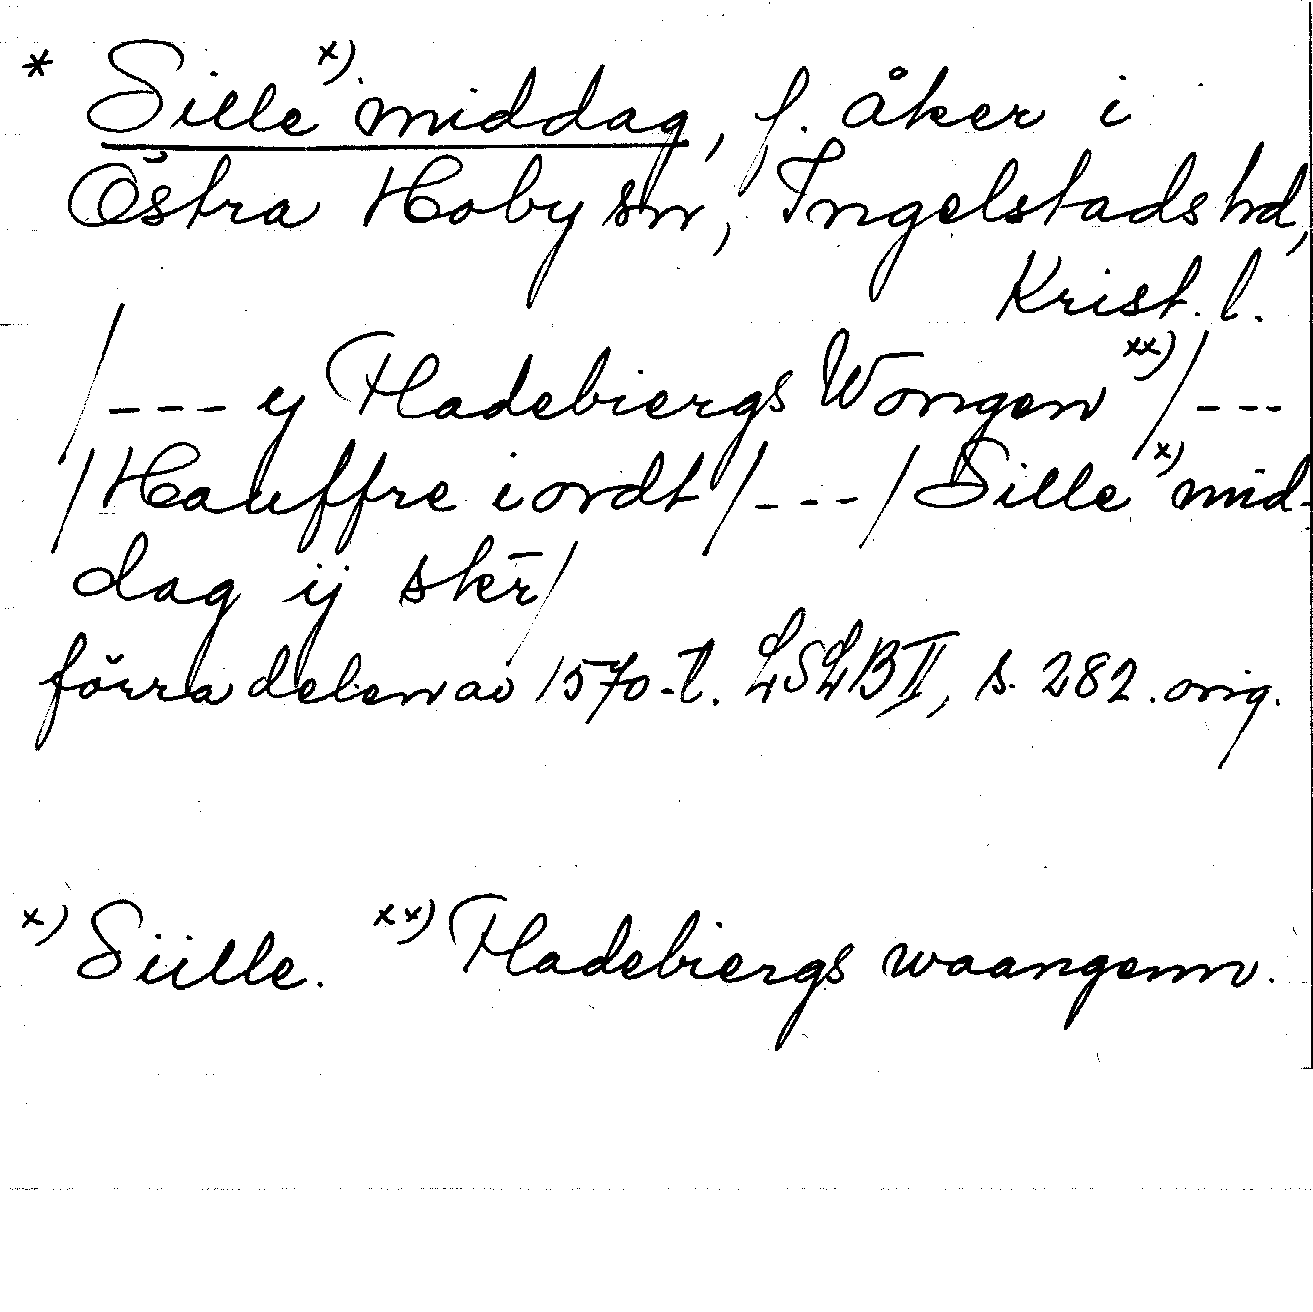 * Sille x) middag, f. åker i
Östra Hoby sn, Ingelstads hd,
Krist. l.
/--- y Fladebiergs Wongen xx) /---
/Hauffre iordt/---/Sille x) mid-
dag ij skr̄/
förra delen av 1570-t. LSLB II, s. 282. orig.
x) Siille. xx) Fladebiergs waangenn.